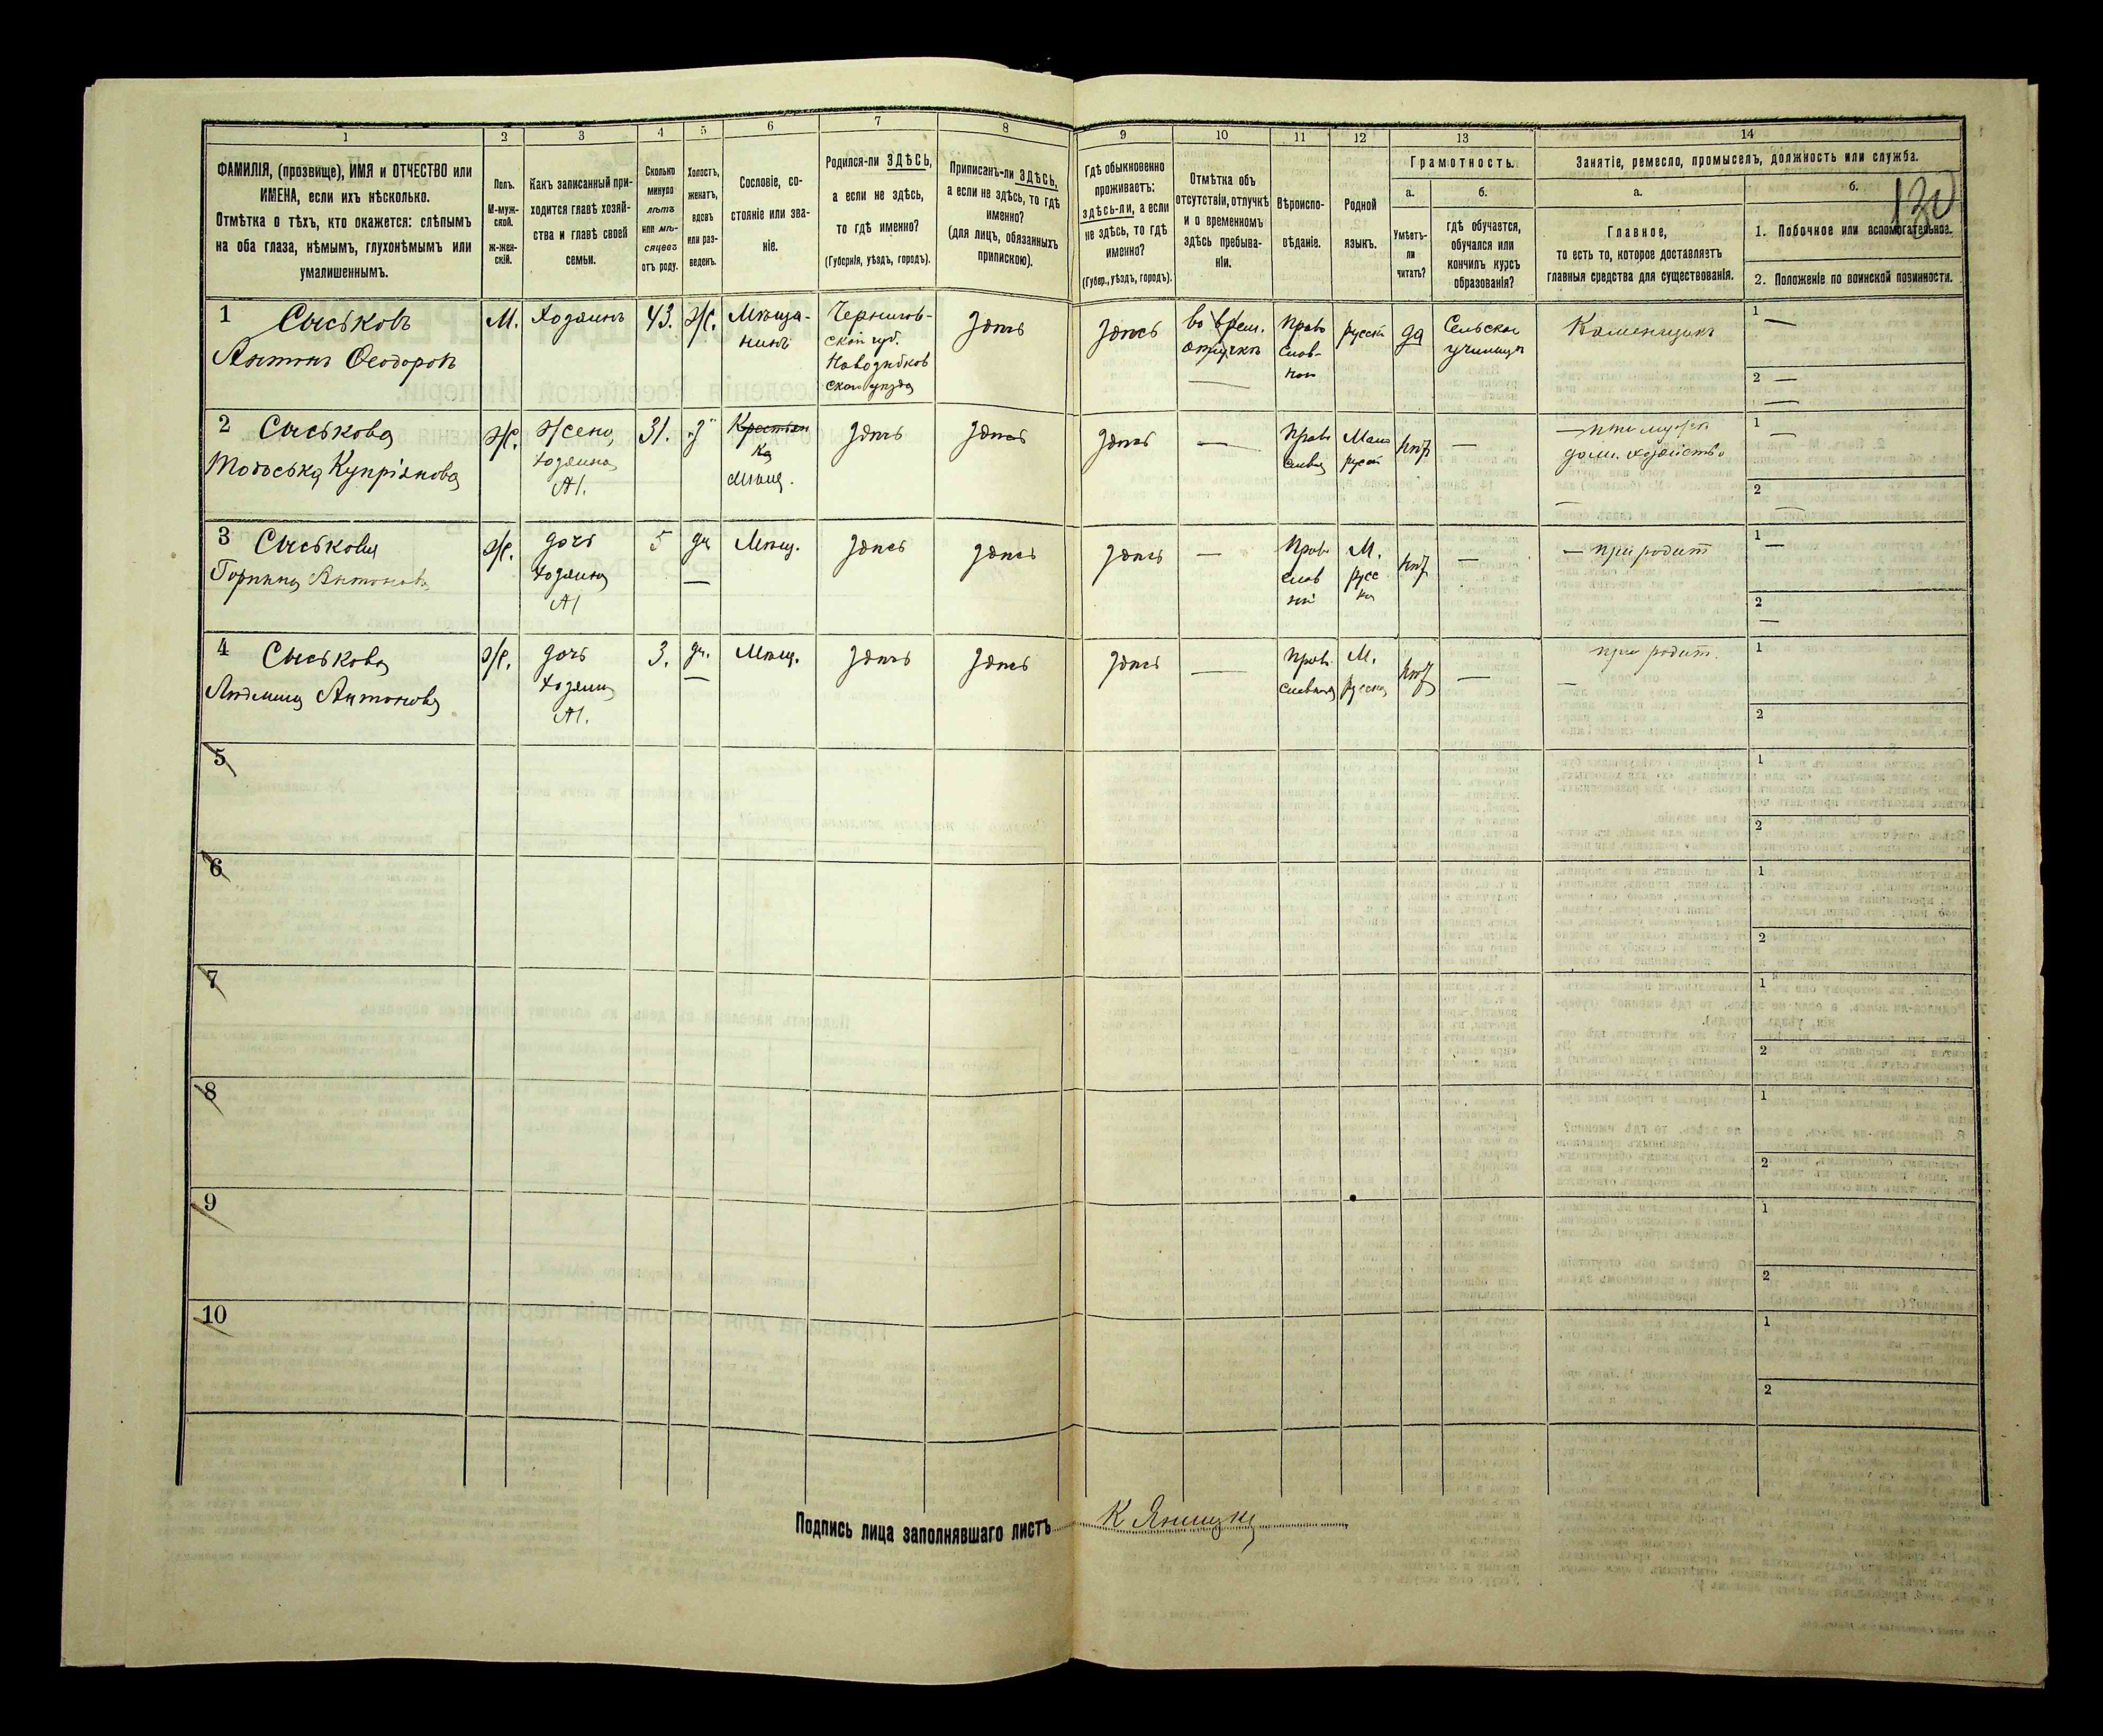 1 2 3 4 5 6 7 8 9 10 11 12 13 14
ФАМИЛІЯ, (прозвище), ИМЯ и ОТЧЕСТВО или
ИМЕНА, если ихъ нѣсколько.
Отмѣтка о тѣхъ, кто окажется: слѣпымъ
на оба глаза, нѣмымъ, глухонѣмымъ или
умалишеннымъ.
Полъ.
М-муж-
ской.
ж-жен-
скій.
Какъ записанный при-
ходится главѣ хозяй-
ства и главѣ своей
семьи.
Сколько
минуло
лѣтъ
или мѣ-
сяцевъ
отъ роду.
Холостъ,
женатъ,
вдовъ
или раз-
веденъ.
Сословіе, со-
стояніе или зва-
ніе.
Родился-ли ЗДѢСЬ,
а если не здѣсь,
то гдѣ именно?
(Губернія, уѣздъ, городъ).
Приписанъ-ли ЗДѢСЬ,
а если не здѣсь, то гдѣ
именно?
(для лицъ, обязанныхъ
припискою).
Гдѣ обыкновенно
проживаетъ:
здѣсь-ли, а если
не здѣсь, то гдѣ
именно?
(Губер., уѣздъ, городъ).
Отмѣтка объ
отсутствіи, отлучкѣ
и о временномъ
здѣсь пребыва-
ніи.
Вѣроиспо-
вѣданіе.
Родной
языкъ.
Грамотность.
а.
Умѣетъ-
ли
читать?
б.
гдѣ обучается,
обучался или
кончилъ курсъ
образованія?
Занятіе, ремесло, промыселъ, должность или служба.
а.
Главное,
то есть то, которое доставляетъ
главныя средства для существованія.
б.
130
1. Побочное или вспомогательное.
2. Положеніе по воинской повинности.
1 Сыськовъ
Антонъ Феодоровъ
М.
Хозяинъ
43.
Ж.
Мѣща-
нинъ
Чернигов-
ской губ.
Новозыбков
скаго уѣзда
Здѣсь
Здѣсь
во врем.
отлучкѣ
—
Право
слав-
ное
русск
да
Сельское
училище
Каменщикъ
1 —
2 —
—
2 Сыськова
Мотоська Купріянова
Ж.
Жена
хозяина
№1.
31.
"З"
Крестьян
ка
мѣщ.
Здѣсь
Здѣсь
Здѣсь
—
Право
славн
Мало
русск
нѣт
—
— при мужѣ
дом. хозяйство
—
1 —
2
—
3 Сыськова
Горпина Антонова
Ж.
дочь
хозяина
№1
5
дч
—
Мѣщ.
Здѣсь
Здѣсь
Здѣсь
—
Прав
слав
ной
М.
русс
ка
нѣт
—
— при родит
1 —
2
—
4 Сыськова
Людмила Антонова
Ж.
дочь
хозяина
№1.
3.
дч.
—
Мѣщ.
Здѣсь
Здѣсь
Здѣсь
—
Прав
славная
М.
русска
нѣт
—
при родит.
—
1
2
5
1
2
6
1
2
7
1
2
8
1
2
9
1
2
10
1
2
Подпись лица заполнявшаго листъ